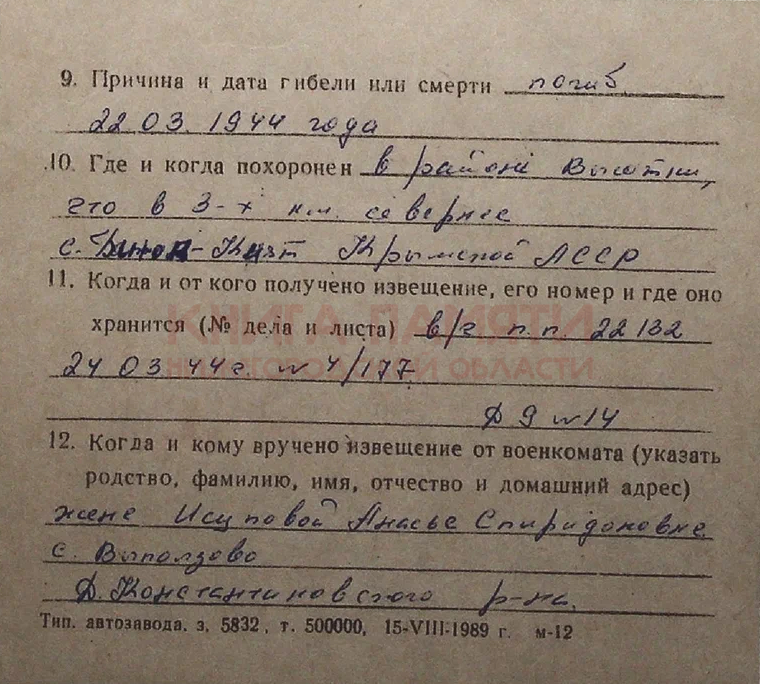 9. Причина и дата гибели или смерти погиб
22 03. 1944 года
10. Где и когда похоронен в районе Высотки,
что в 3-х км. севернее
с. -Кият Крымской АССР
11. Когда и от кого получено извещение, его номер и где оно
хранится (№ дела и листа) в/ч п.п. 22132
24 03 44 г. № 4/177
Д 9 л 14
12. Когда и кому вручено извещение от военкомата (указать
родство, фамилию, имя, отчество и домашний адрес)
жене Исуповой Анасье Спиридоновне
с. Выползово
Д. Константиновского р-на.
Тип. автозавода, з. 5832, т. 500000, 15-VIII-1989 г. м-12
КНИГА ПАМЯТИ
НИЖЕГОРОДСКОЙ ОБЛАСТИ